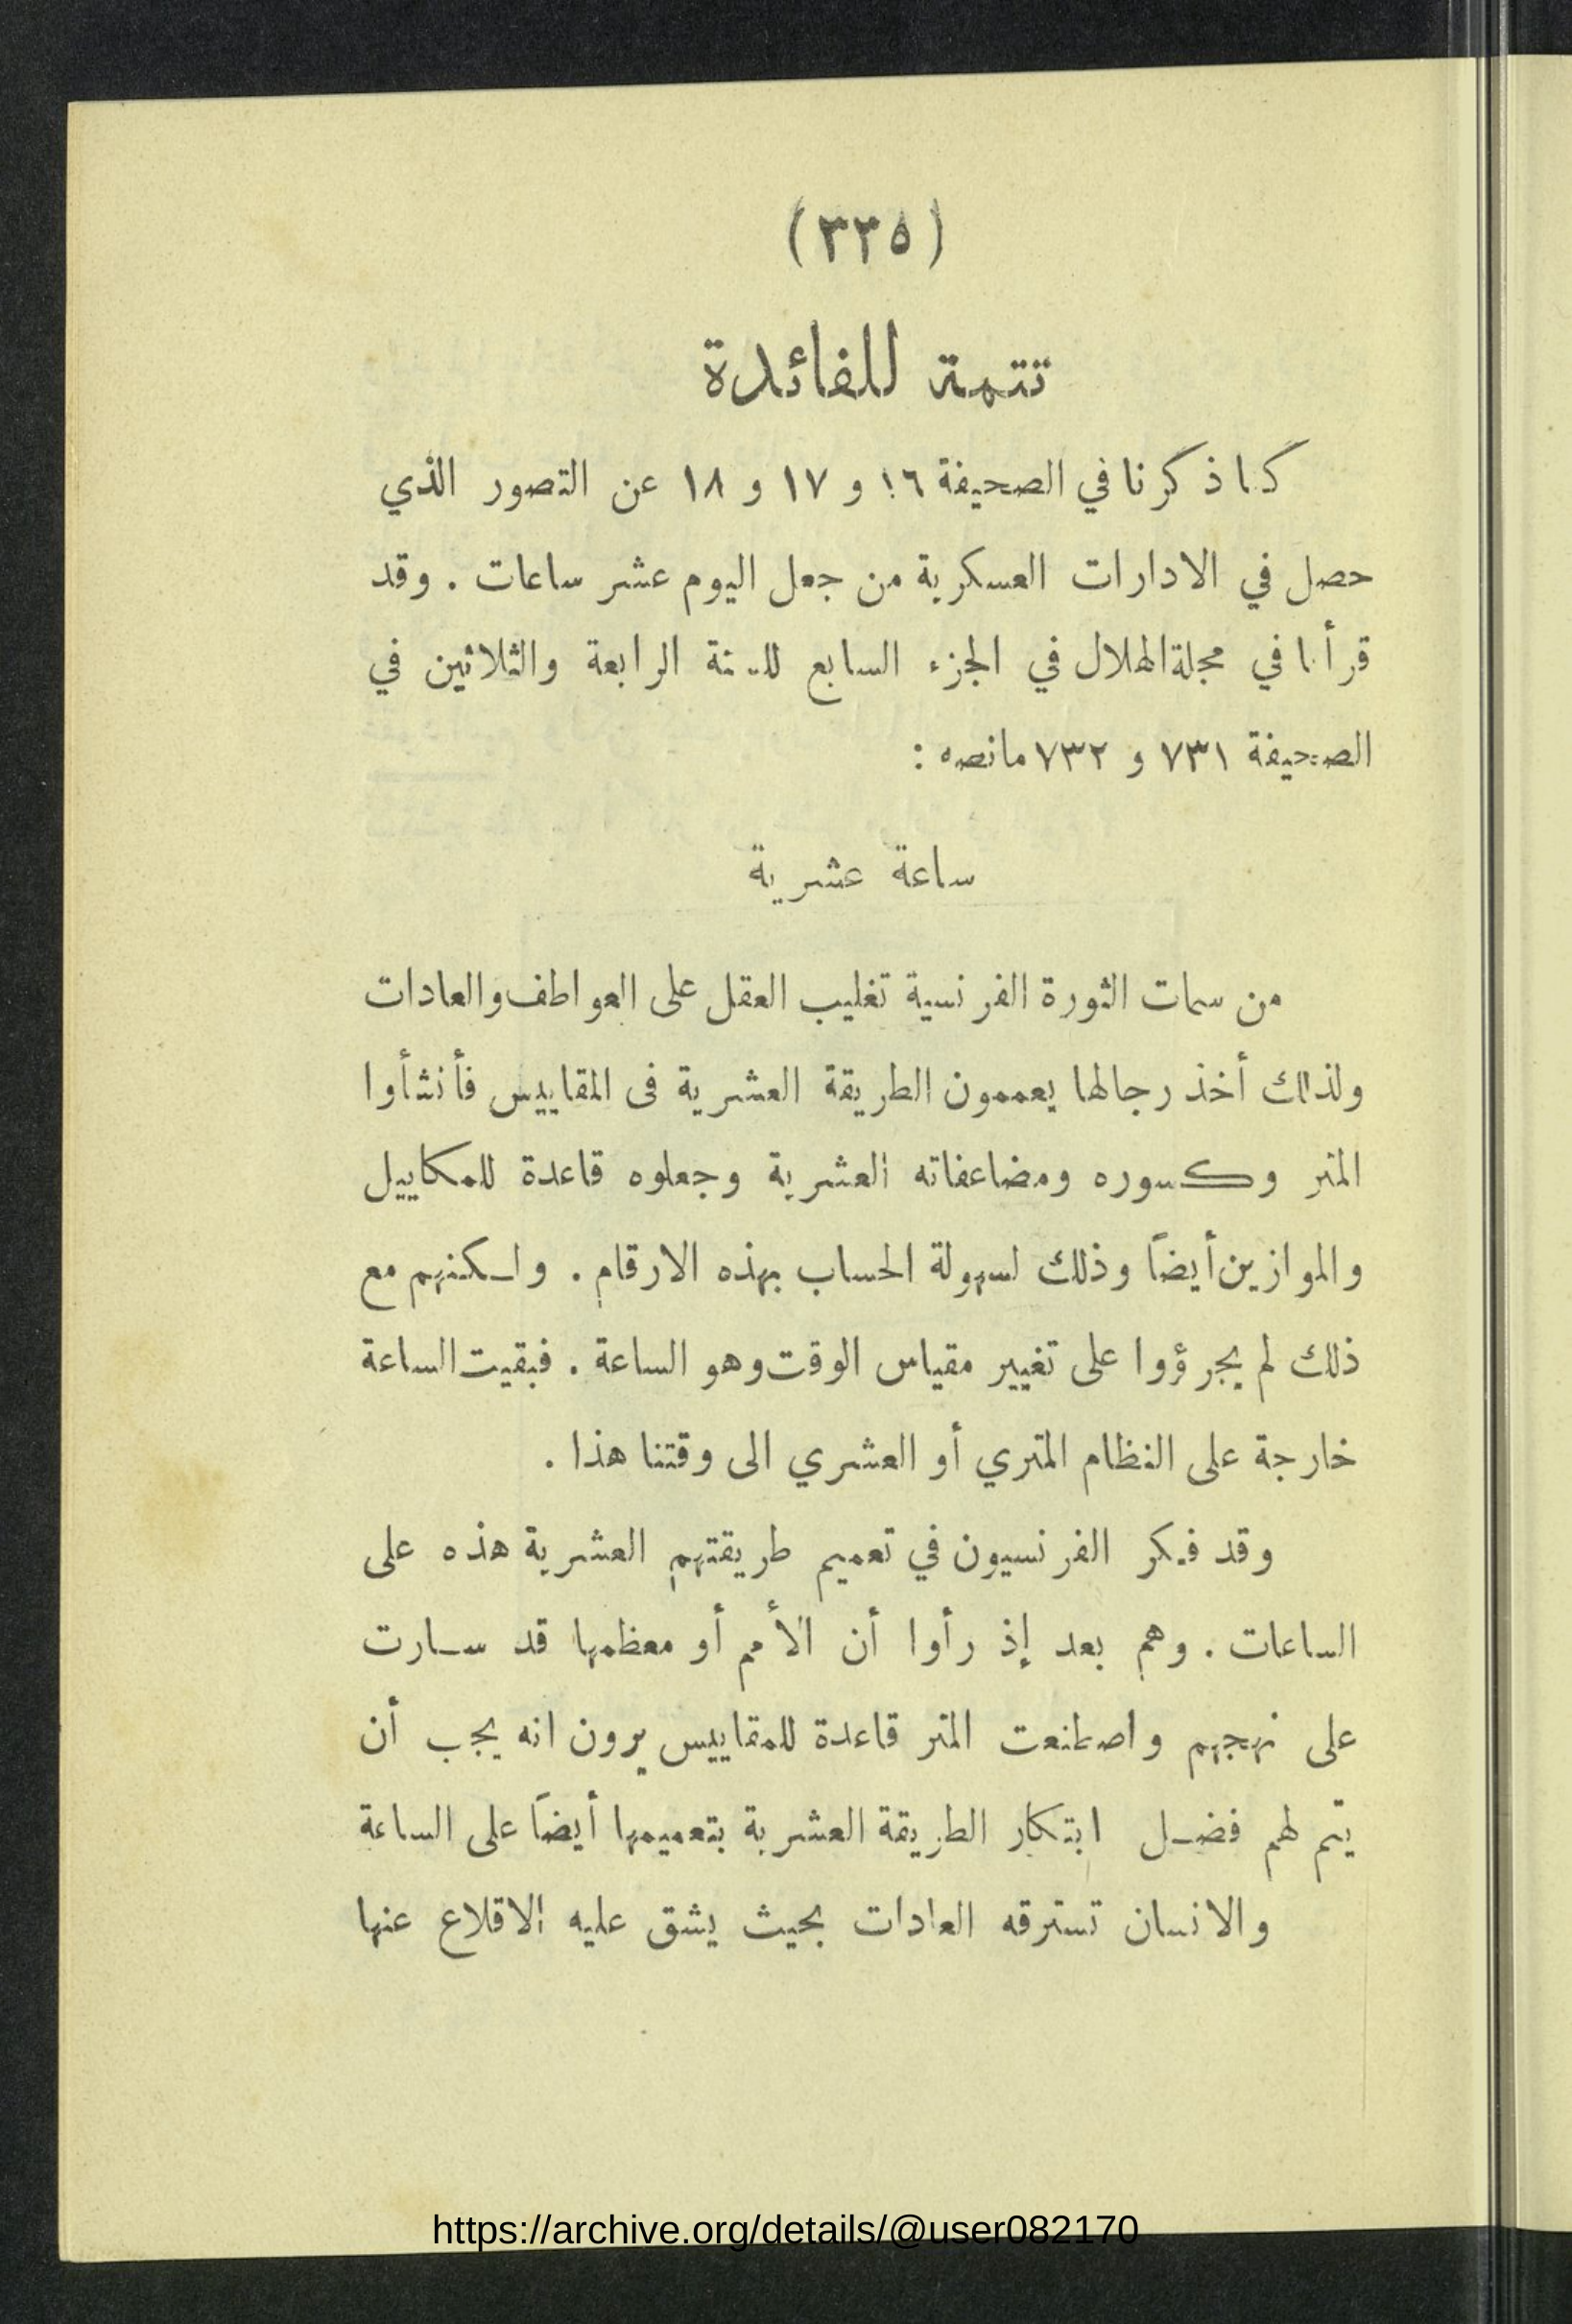 (٣٣٥)
تتمة للفائدة
كما ذكرنا في الصحيفة ١٦ و ١٧ و ١٨ عن التصور الذي
حصل في الادارات العسكرية من جعل اليوم عشر ساعات . وقد
قرأنا في مجلة الهلال في الجزء السابع للسنة الرابعة والثلاثين في
الصحيفة ٧٣١ و ٧٣٢ مانصه :
ساعة عشرية
من سمات الثورة الفرنسية تغليب العقل على العواطف والعادات
ولذلك أخذ رجالها يعممون الطريقة العشرية فى المقاييس فأنشأوا
المتر وكسوره ومضاعفاته العشرية وجعلوه قاعدة للمكاييل
والموازين أيضاً وذلك لسهولة الحساب بهذه الارقام . ولكنهم مع
ذلك لم يجرؤوا على تغيير مقياس الوقت وهو الساعة . فبقيت الساعة
خارجة على النظام المتري أو العشري الى وقتنا هذا .
وقد فكر الفرنسيون في تعميم طريقتهم العشرية هذه على
الساعات . وهم بعد إذ رأوا أن الأمم أو معظمها قد سارت
على نهجهم واصطنعت المتر قاعدة للمقاييس يرون انه يجب أن
يتم لهم فضل ابتكار الطريقة العشرية بتعميمها أيضاً على الساعة
والانسان تسترقه العادات بحيث يشق عليه الاقلاع عنها
https://archive.org/details/@user082170